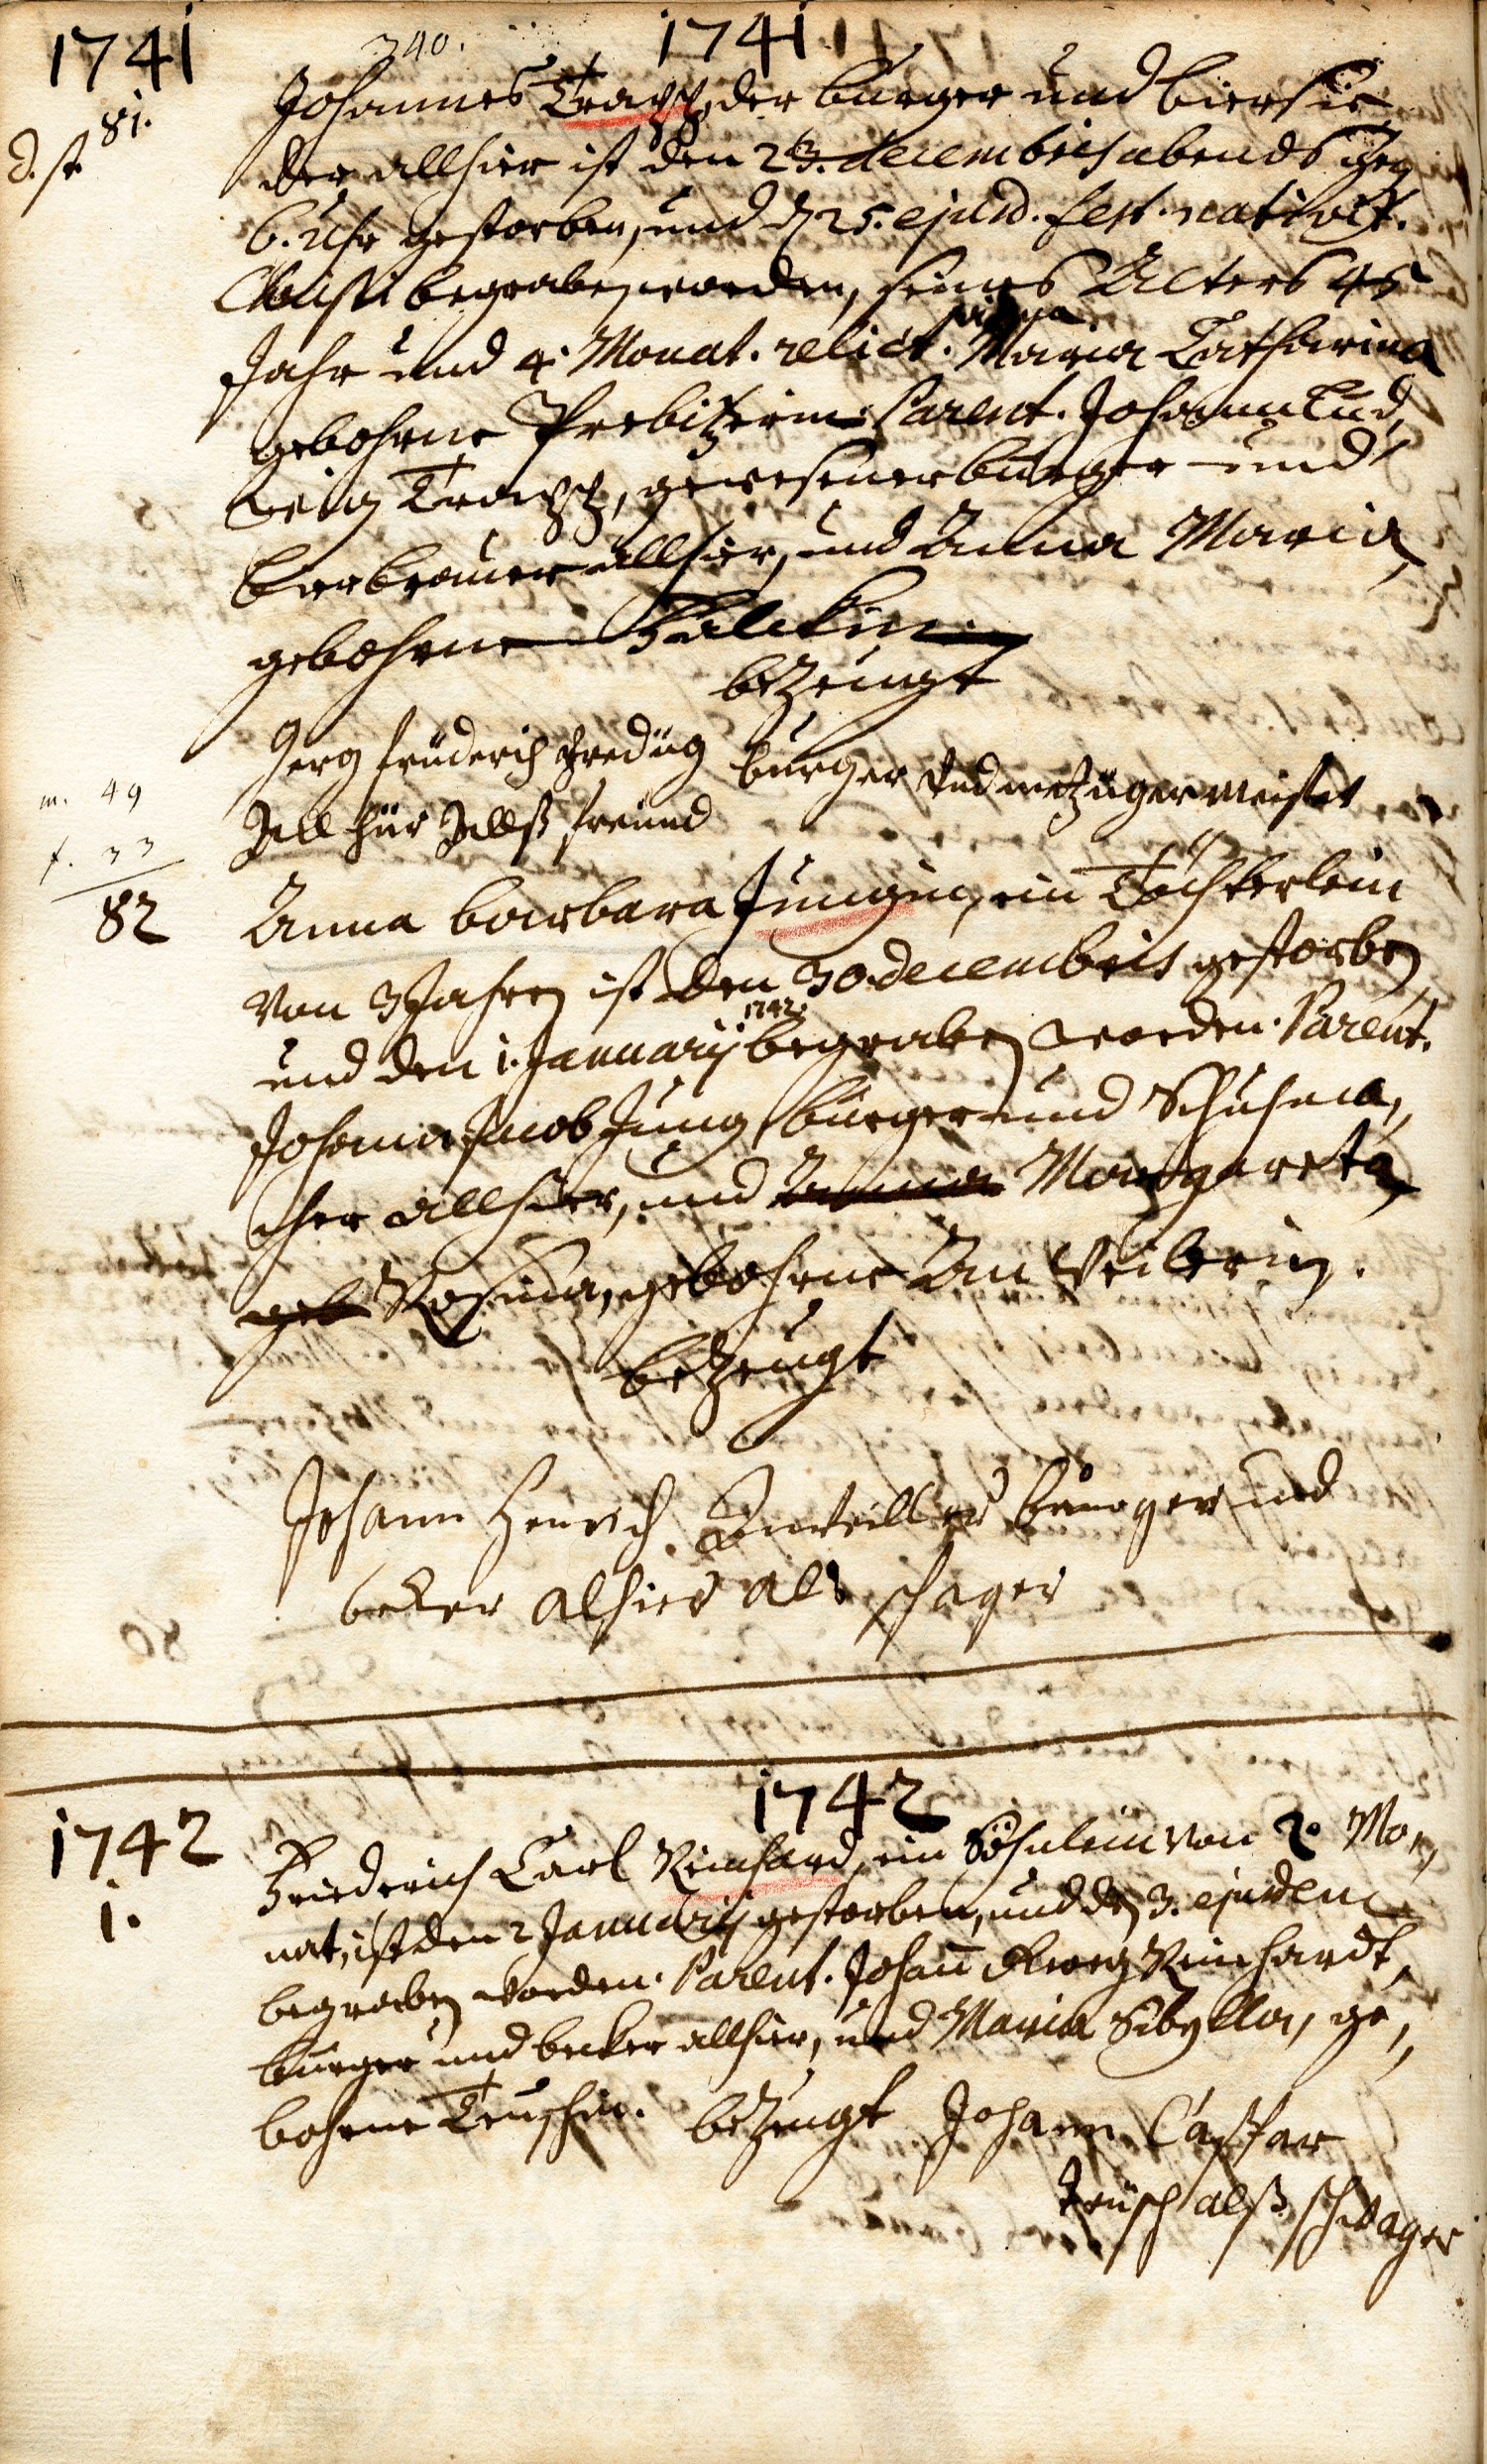 1741 340. 1741
81. Johannes Trapp, der burger und biersie
d. st. der allhier ist den 23. decembris abends
6. Uhr gestorben, und d 25. ejusd. fest. nativit.
Christi begraben worden, seines Alters 45
Jahr und 4. Monat. relict. Maria Catharina
gebohrne Parent. Johann Lud,
wig Trapp, gewesener burger und
bierbrauer allhier, und Anna Maria,
gebohrne
bezeugt
Jerg friderich burger und metzüger meister
freund
m. 49
f. 33
82 Anna barbara Jungin, ein Töchterlein
von 3 Jahren ist den 30. decembris gestorben
1742.
und den 1. Januarij begraben worden. Parent.
Johann Jacob Jung, burger und Schuhma,
cher allhier, und Anna Margareta
geb Rosina, gebohrne Anweilerin.
bezeugt
Johann Henrich Anweiller burger und
beker alhier als schwager
1742
1742 Friederich Carl Reinhard, ein Söhnlein von 2. Mo,
1. nat, ist den 2 Januarij gestorben, und den 3. ejusdem
begraben worden. Parent. Johann Georg Reinhardt,
burger und becker allhier, und Maria Sibylla, ge,
bohrne Teuschin. bezeugt Johann Caspar
Teüsch alß schwager